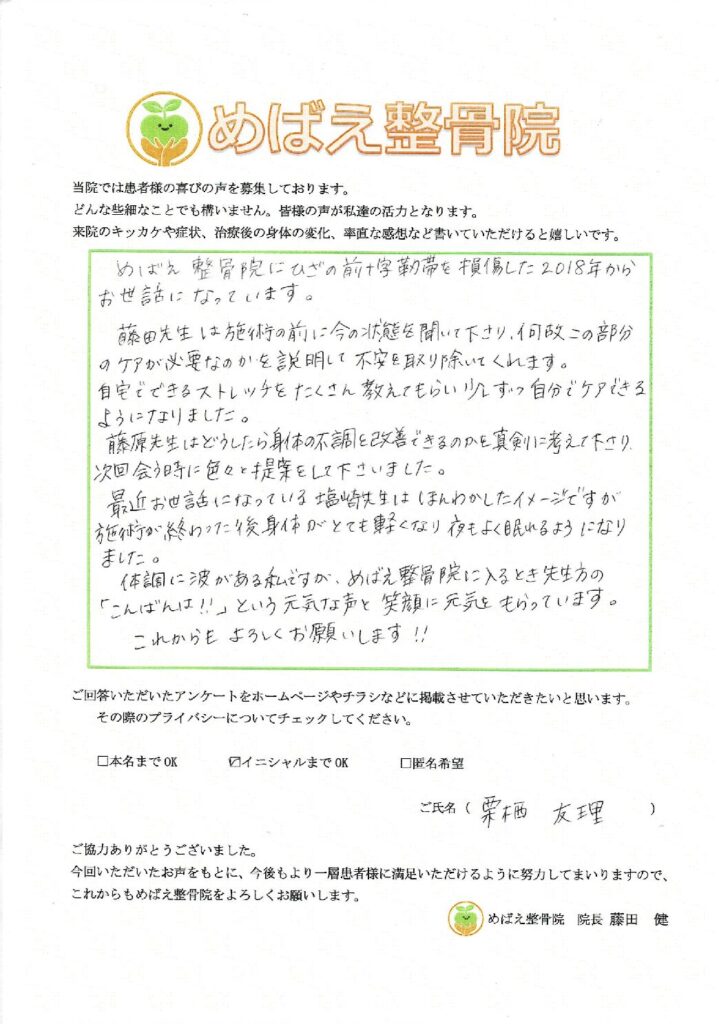 めばえ整骨院
当院では患者様の喜びの声を募集しております。
どんな些細なことでも構いません。皆様の声が私達の活力となります。
来院のキッカケや症状、治療後の身体の変化、率直な感想など書いていただけると嬉しいです。
めばえ整骨院にひざの前十字靭帯を損傷した2018年から
お世話になっています。
藤田先生は施術の前に今の状態を聞いて下さり、何故この部分
のケアが必要なのかを説明して不安を取り除いてくれます。
自宅でできるストレッチをたくさん教えてもらい少しずつ自分でケアできる
ようになりました。
藤原先生はどうしたら身体の不調を改善できるのかを真剣に考えて下さり、
次回会う時に色々と提案をして下さいました。
最近お世話になっている塩崎先生はほんわかしたイメージですが
施術が終わった後身体がとても軽くなり夜もよく眠れるようになり
ました。
体調に波がある私ですが、めばえ整骨院に入るとき先生方の
「こんばんは!!」という元気な声と笑顔に元気をもらっています。
これからもよろしくお願いします!!
ご回答いただいたアンケートをホームページやチラシなどに掲載させていただきたいと思います。
その際のプライバシーについてチェックしてください。
□本名までOK ☑イニシャルまでOK □匿名希望
ご氏名（栗栖 友理）
ご協力ありがとうございました。
今回いただいたお声をもとに、今後もより一層患者様に満足いただけるように努力してまいりますので、
これからもめばえ整骨院をよろしくお願いします。
めばえ整骨院 院長 藤田 健